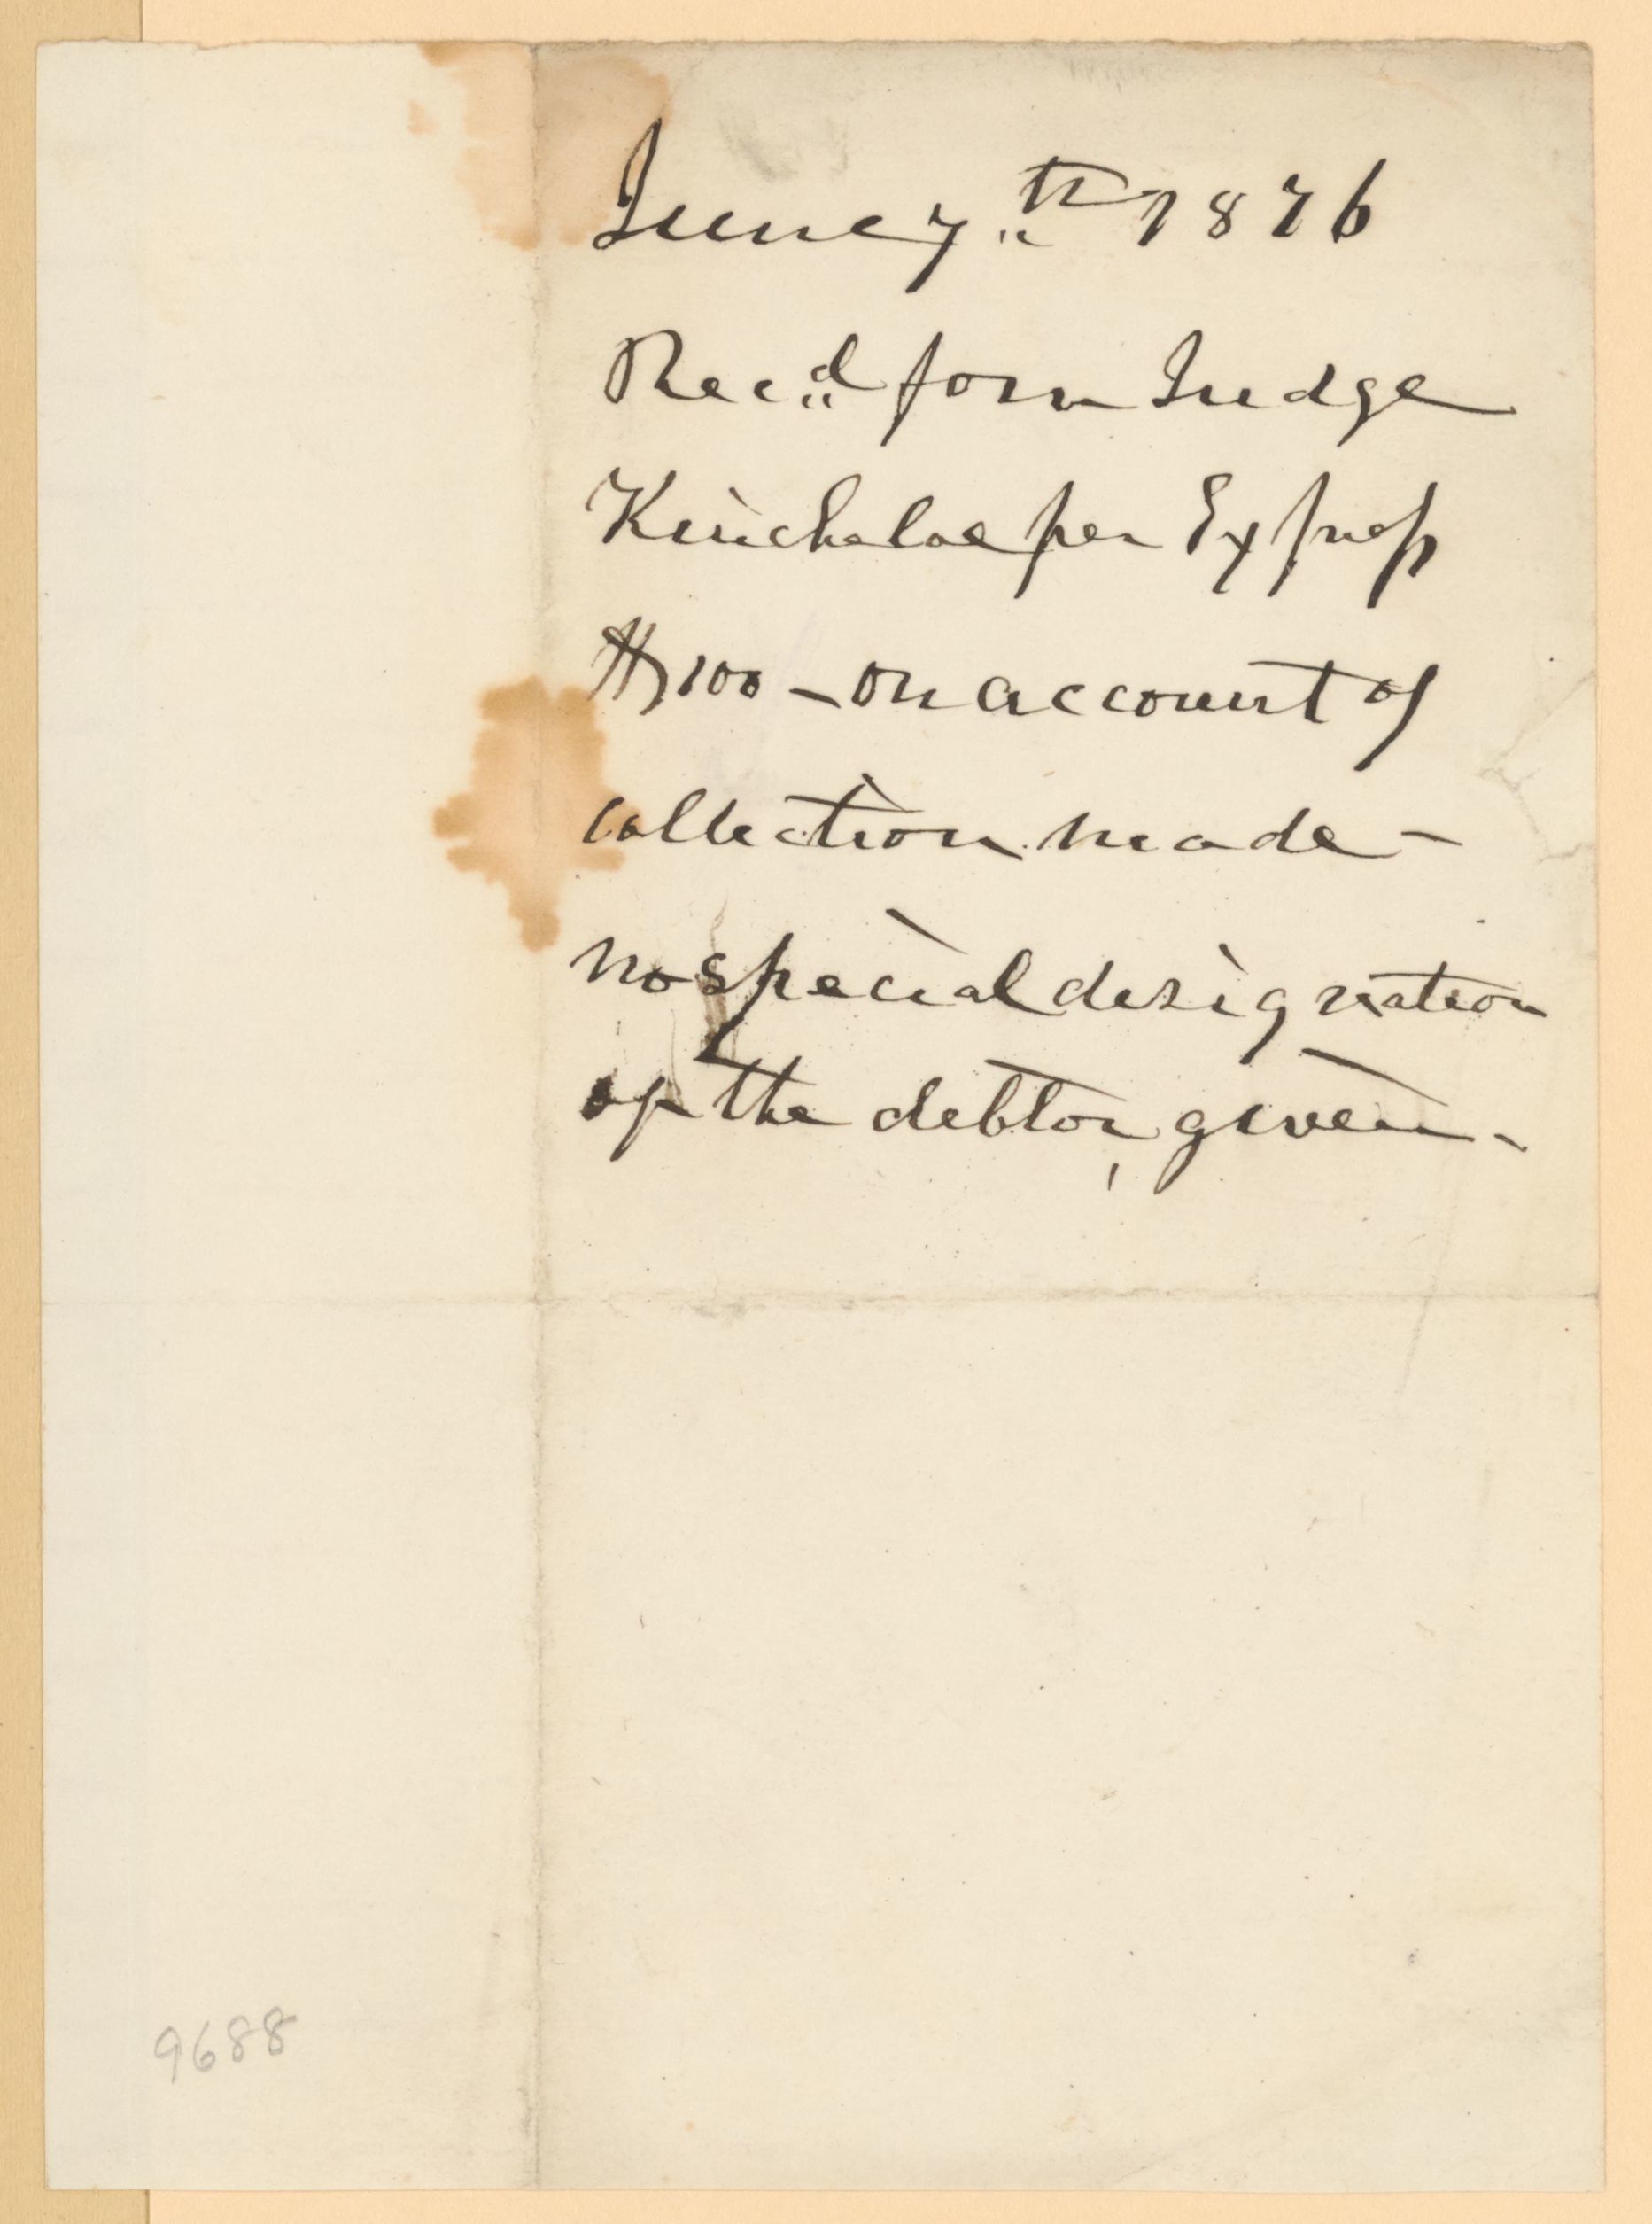 June 7th 1876
Recd form Judge
Kincheloe per Express
$100 - on account of
collection made -
no special designation
of the debtor, given -
9688